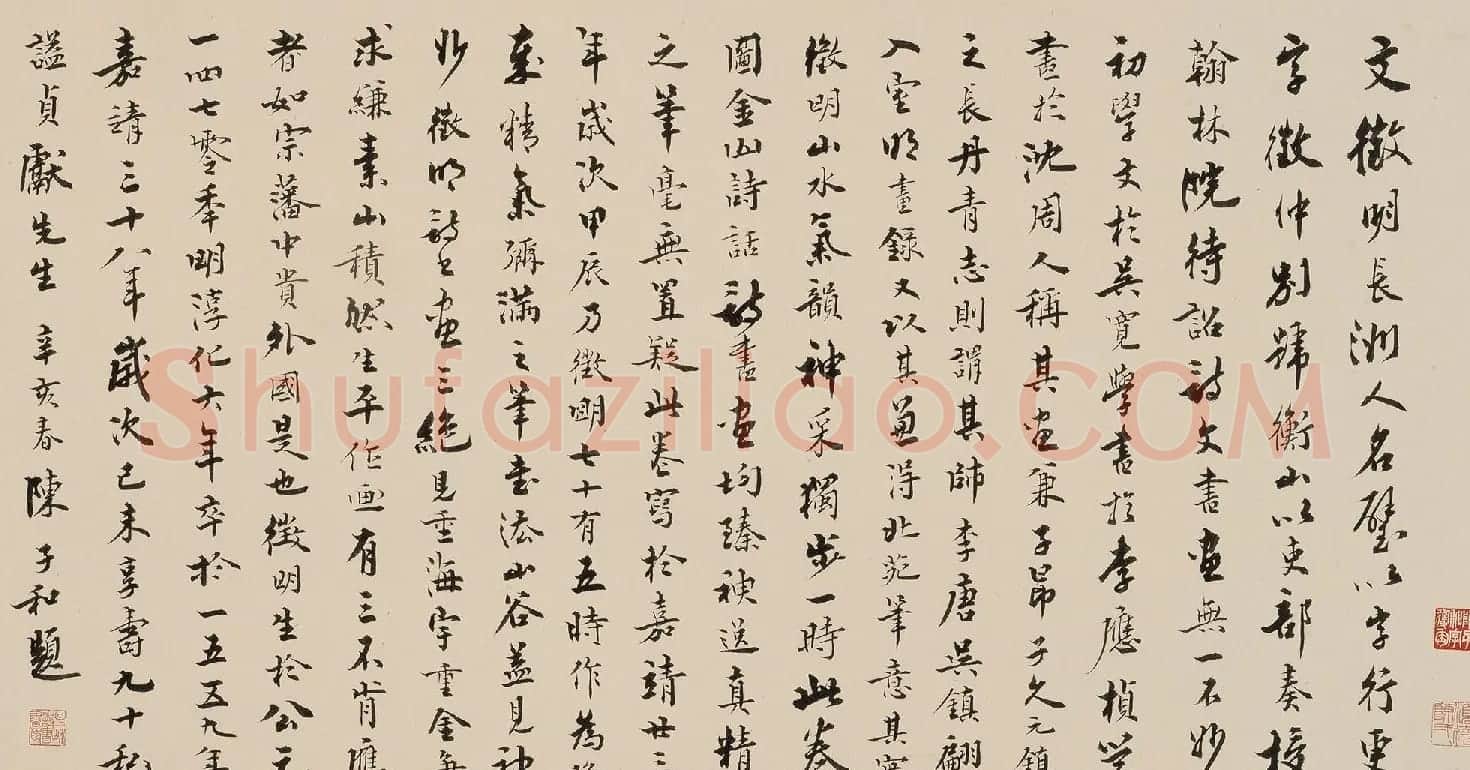 文徵明長洲人名璧以字行更
字徵仲別號衡山以吏部奏授
翰林院待詔詩文書畫無一不妙
初學文於吳寬學書於李應楨學
畫於沈周人稱其畫兼子昂子久元鎮
之長丹青志則謂其師李唐吳鎮翩
入室明畫錄又以其兼得北苑筆意其寫
徵明山水氣韻神采獨步一時此卷
圖金山詩話詩書畫均臻神逸真精
之筆毫無置疑此卷寫於嘉靖廿三
年歲次甲辰乃徵明七十有五時作為
來精氣彌滿之筆書法山谷益見神
妙徵明詩書畫三絕見重海宇重金
求縑素山積然生平作畫有三不肯應
者如宗藩中貴外國是也徵明生於公元
一四七零年明淳化六年卒於一五五九年
嘉靖三十八年歲次己未享壽九十私
謚貞獻先生 辛亥春 陳子和題
Shufaziliao.COM